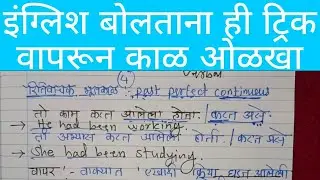 इंग्लिश बोलताना ही ट्रिक
वापरून काळ ओळखा
(4)
रितिवाचक भूतकाळ past perfect continuous
तो काम करत आलेला होता. / करत असे
He had been working.
ती अभ्यास करत आलेली होती. / करत असे
She had been studying.
वापर: वाक्यात एखादी क्रिया घडत आलेली